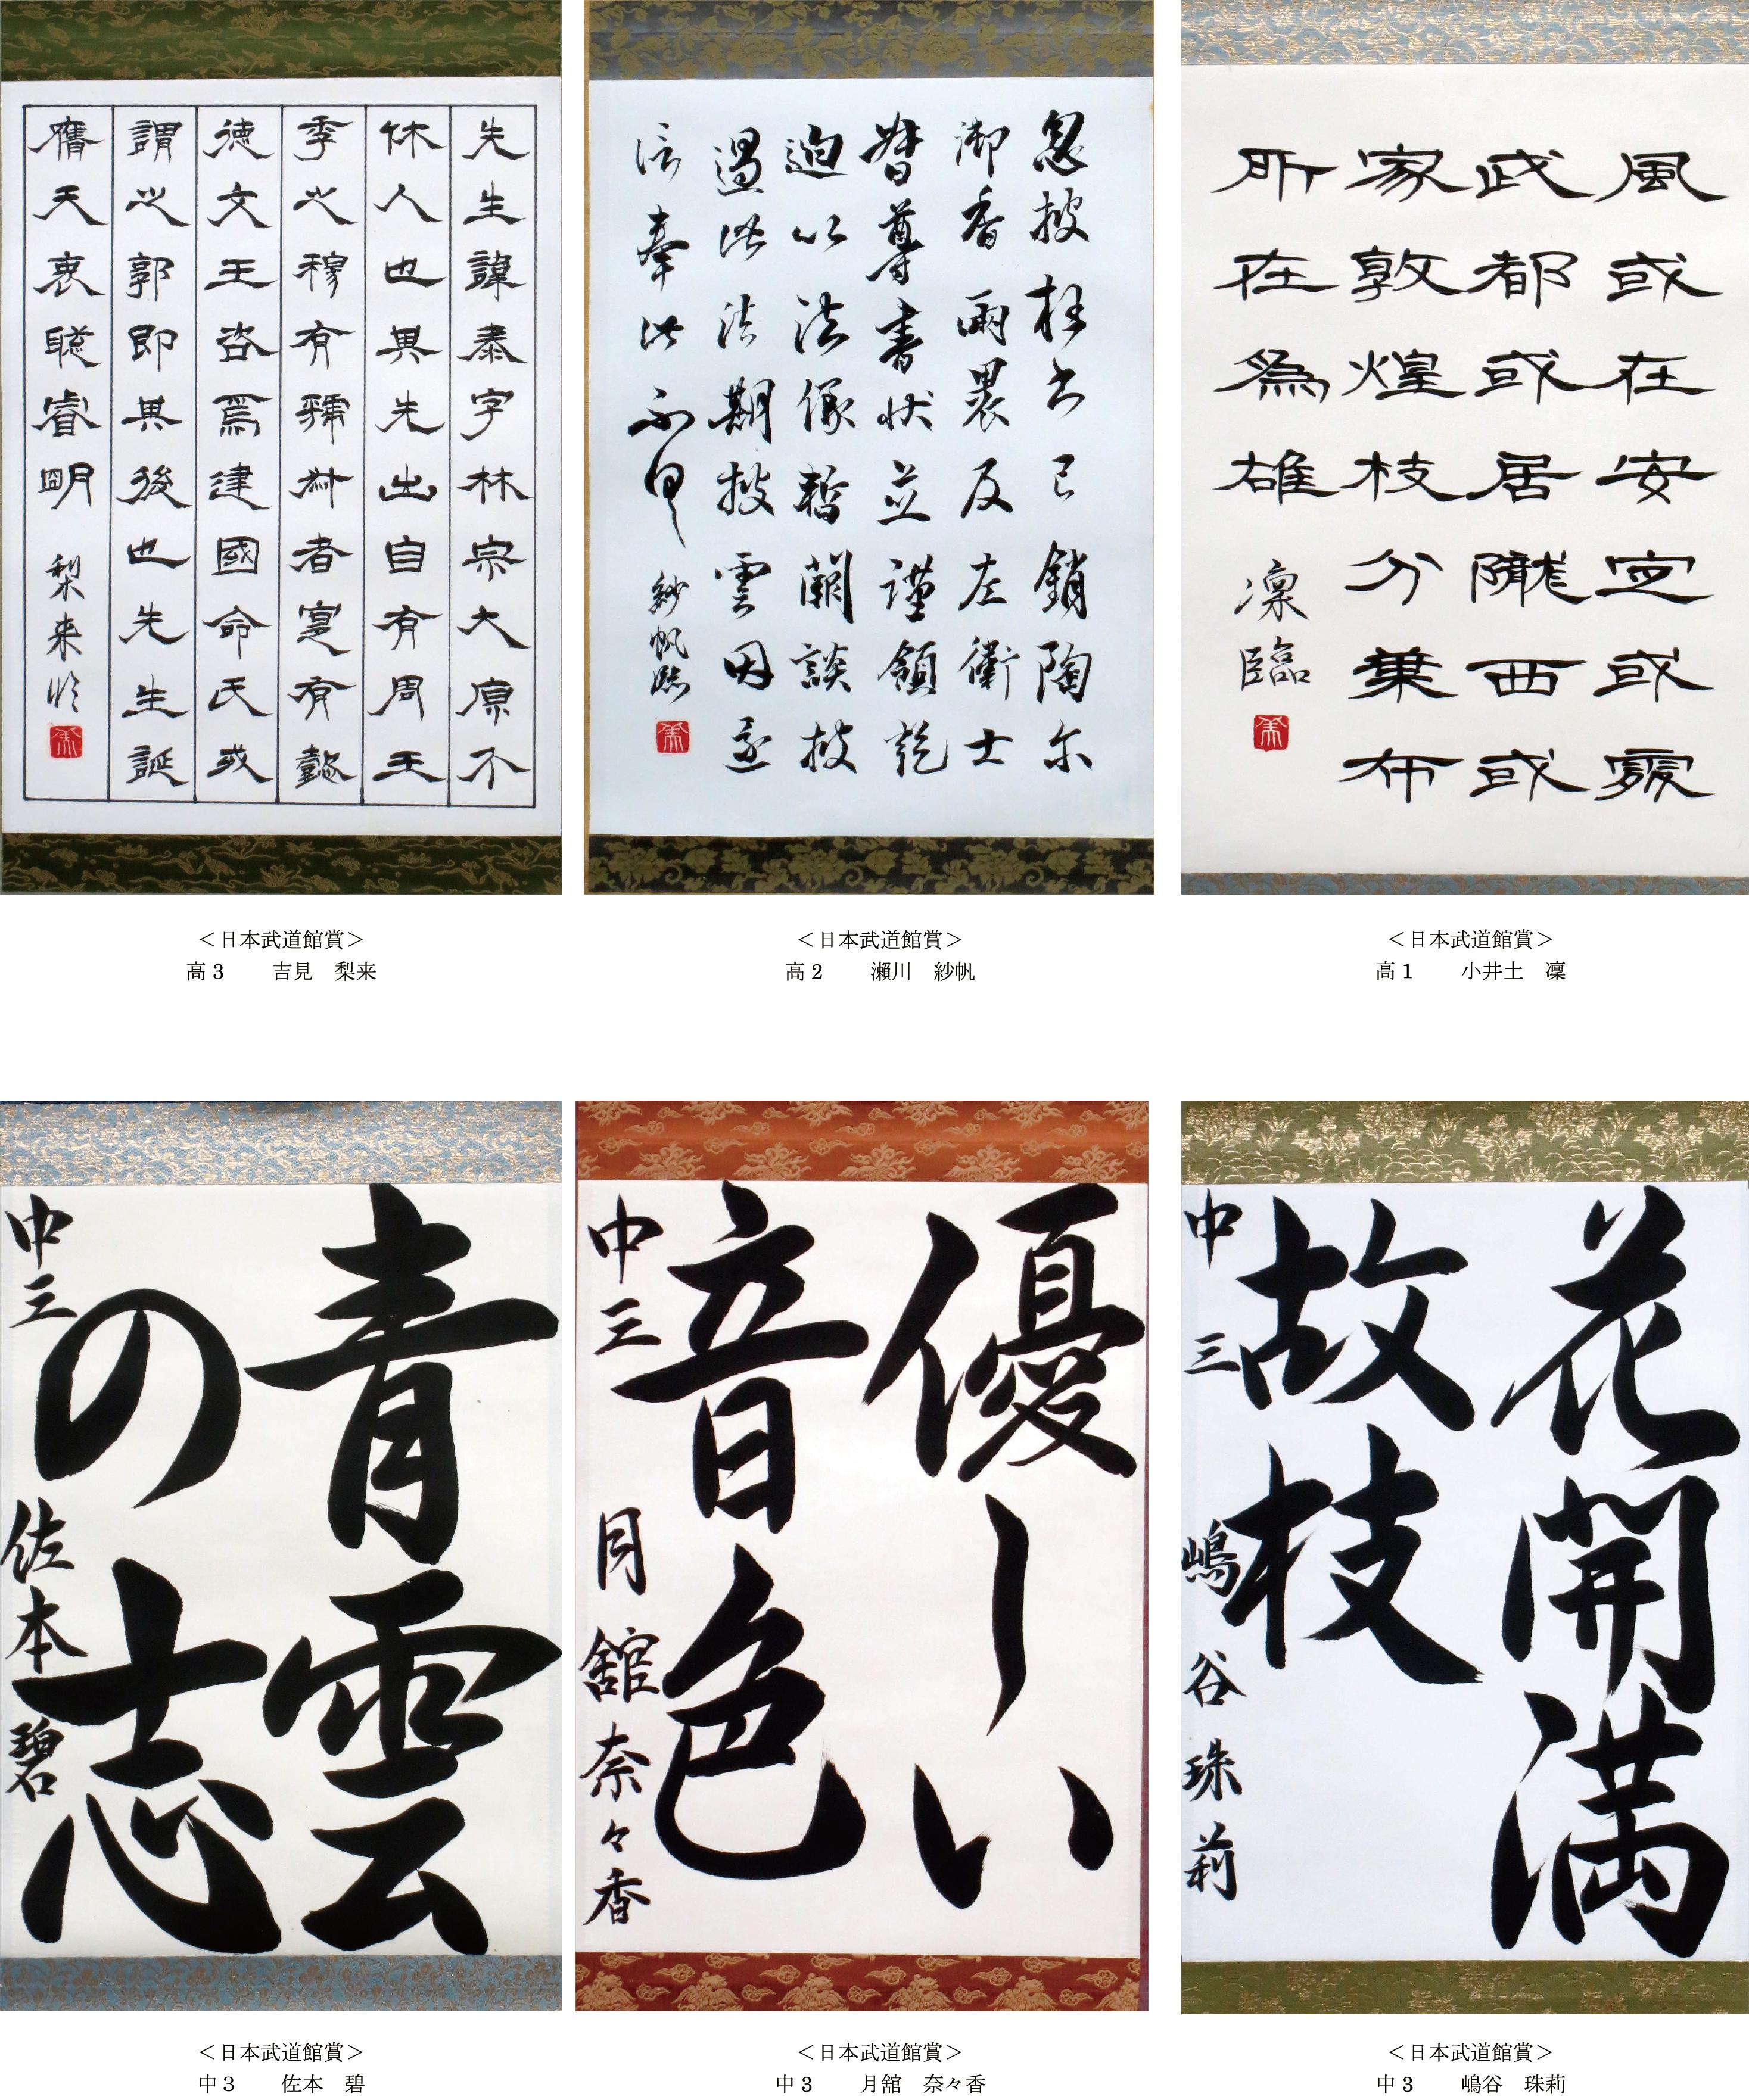 風或在安定或處
武都或居隴西或
家敦煌枝分葉布
所在爲雄
凛臨
＜日本武道館賞＞
高1　小井土　凜
忽披枉書已銷陶尓
御香兩裹及左衛士
督尊書状並謹領訖
迫以法縁暫闕談披
過此法期披雲因還
信奉此不具
紗帆臨
＜日本武道館賞＞
高2　瀬川　紗帆
先生諱泰字林宗大原不
休人也其先出自有周王
季之穆有虢叔者寔有懿
徳文王咨焉建國命氏或
謂之郭即其後也先生誕
膺天衷聡睿明
梨来臨
＜日本武道館賞＞
高3　吉見　梨来
花開満
故枝
中三　嶋谷珠莉
＜日本武道館賞＞
中3　嶋谷　珠莉
優しい
音色
中三　月舘奈々香
＜日本武道館賞＞
中3　月舘　奈々香
青雲
の志
中三　佐本碧
＜日本武道館賞＞
中3　佐本　碧